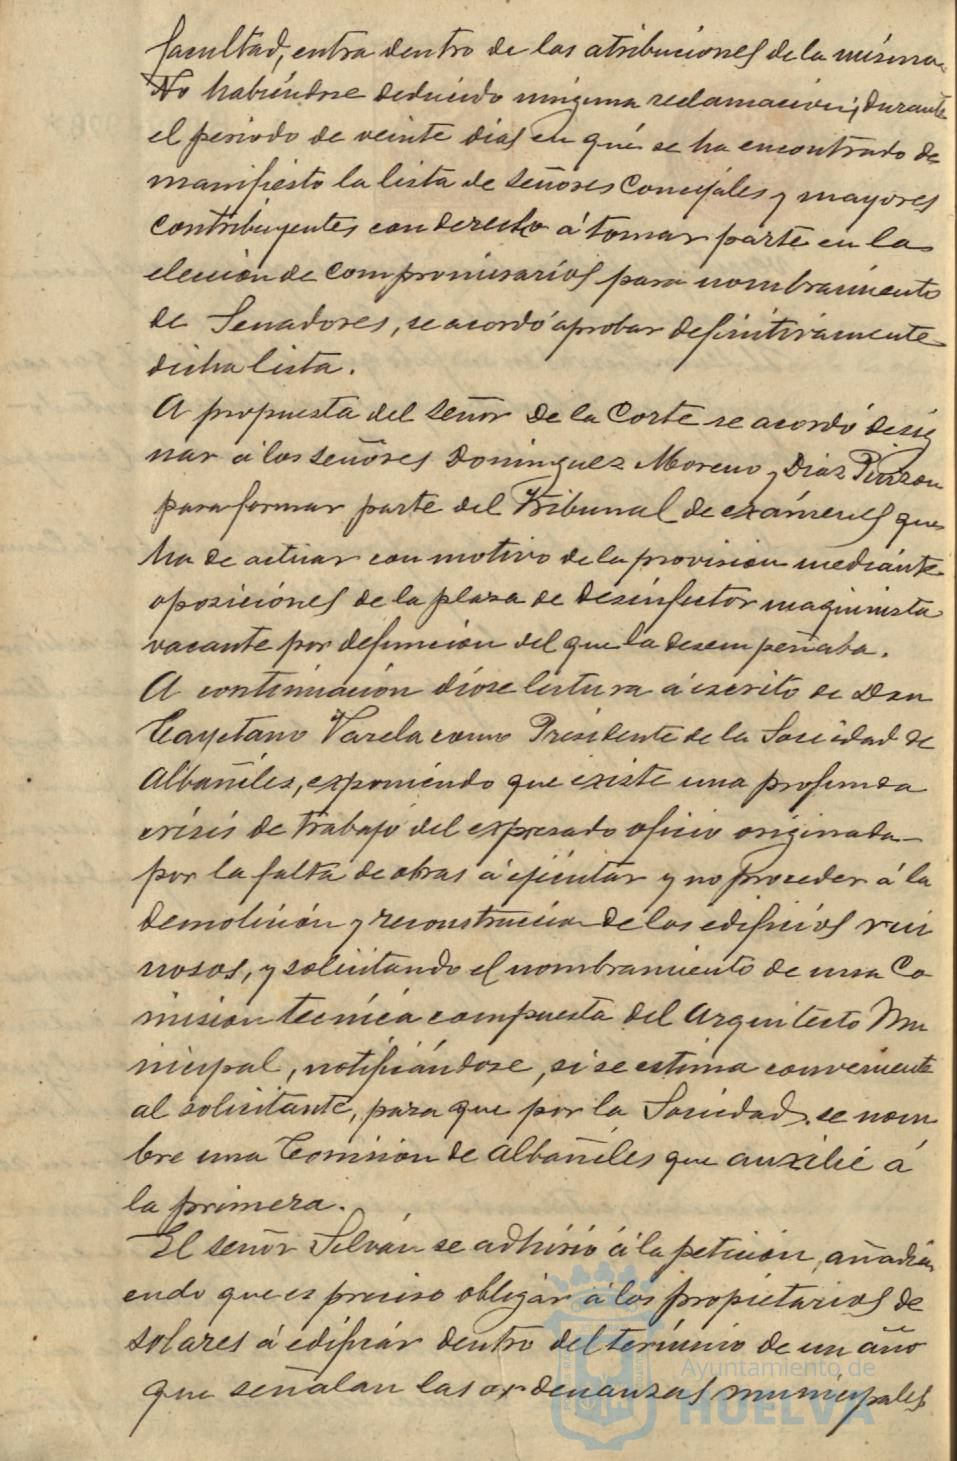 facultad, entra dentro de las atribuciones de la misma.
No habiéndose deducido ninguna reclamación, durante
el periodo de veinte dias en qué se ha encontrado de
manifiesto la lista de señores Concejales y mayores
contribuyentes con derecho á tomar parte en la
elección de compromisarios para nombramiento
de Senadores, se acordó aprobar definitivamente
dicha lista.
A propuesta del señor De la Corte se acordó desig
nar á los señores Dominguez Moreno y Diaz Pinzon
para formar parte del Tribunal de exámenes que
ha de actuar con motivo de la provision mediante
oposiciónes de la plaza de desinfector maquinista
vacante por defuncion del que la desempeñaba.
A continuación dióse lectura á escrito de Don
Cayetano Varela como Presidente de la Sociedad de
Albañiles, exponiendo que existe una profunda
crisis de trabajo del expresado oficio originada
por la falta de obras á ejecutar y no proceder á la
demolición y reconstrucción de los edificios rui
nosos, y solicitando el nombramiento de una Co
mision tecnica compuesta del Arquitecto Mu
nicipal, notificándose, si se estima conveniente
al solicitante, para que por la Sociedad se nom
bre una Comision de albañiles que auxilie á
la primera.
El señor Silván se adhirió á la petición, añadi
endo que es preciso obligar á los propietarios de
solares á edificar dentro del termino de un año
que señalan las ordenanzas municipales
Ayuntamiento de
HUELVA